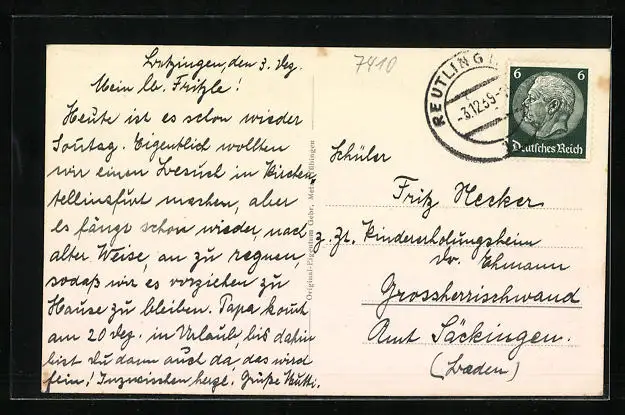 Betzingen, den 3. Dez.
Mein lb. Fritzle!
Heute ist es schon wieder
Sonntag. Eigentlich wollten
wir einen Besuch in Kirchen-
tellinsfurt machen, aber
es fängt schon wieder, nach
alter Weise, an zu regnen,
sodaß wir es vorziehen zu
Hause zu bleiben. Papa kommt
am 20 Dez. in Urlaub bis dahin
bist du dann auch da, das wird
fein! Inzwischen herzl. Grüße Mutti.
7410
Original-Eigentum Gebr. Metz, Tübingen
REUTLINGEN
-3.12.39-
6 6
Deutsches Reich
Schüler
Fritz Hecker
z. Zt. Kindererholungsheim
Dr. Ehmann
Grossherrischwand
Amt Säckingen.
(Baden)